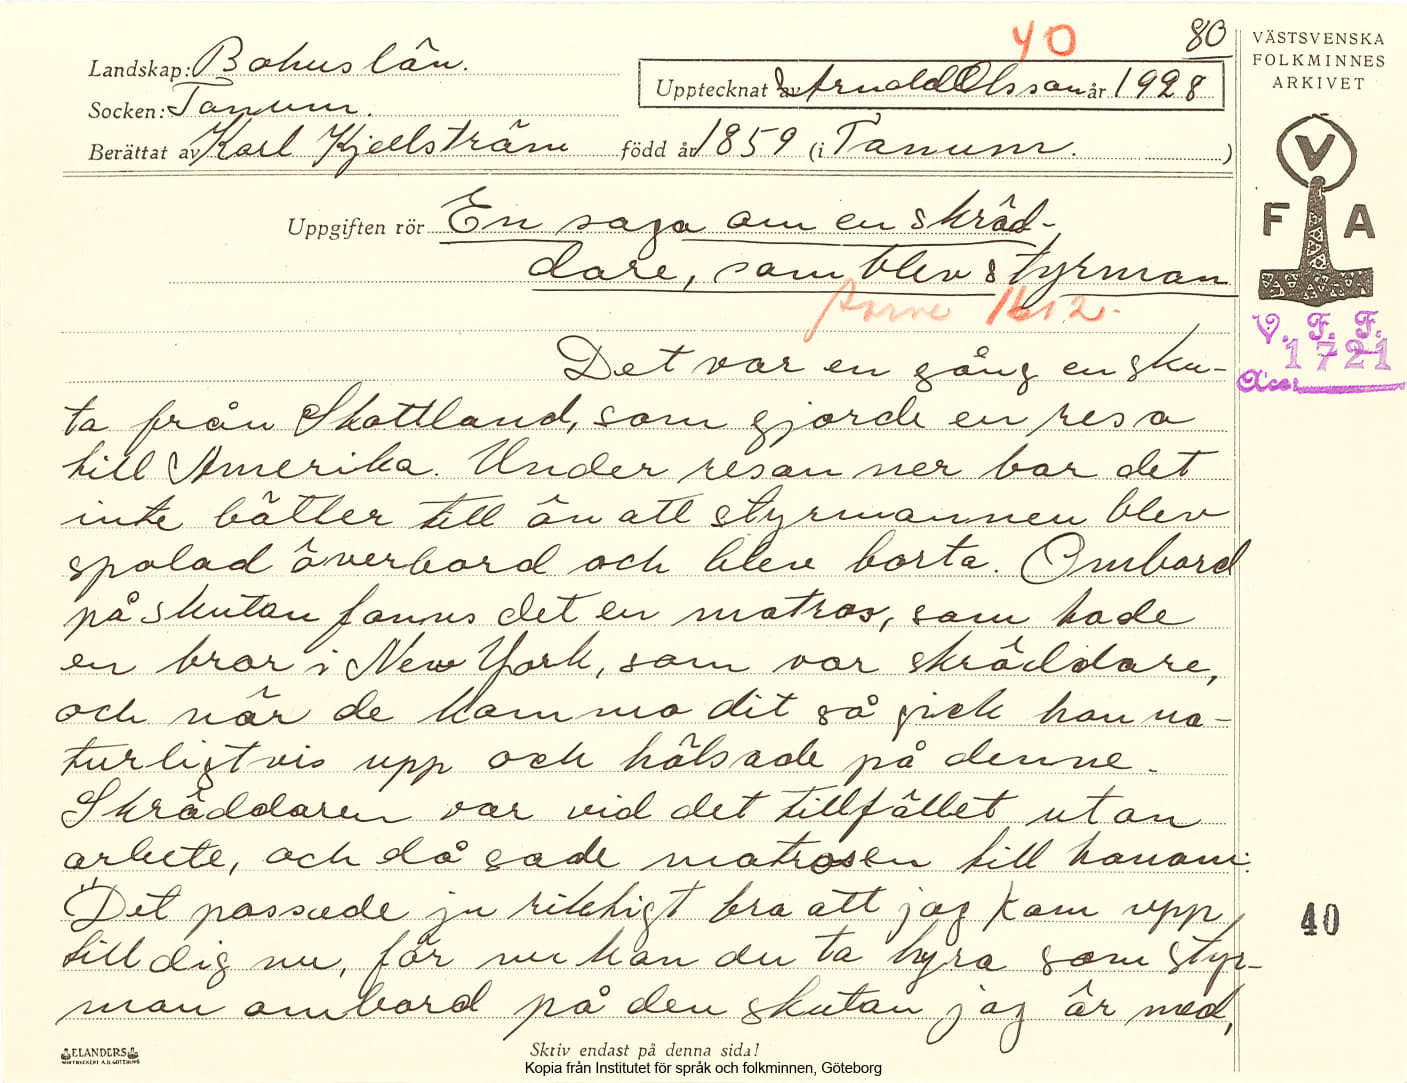 40
80
VÄSTSVENSKA
FOLKMINNES
ARKIVET
Landskap: Bohuslän.
Upptecknat av Arnold Olsson år 1928
Socken: Tanum.
Berättat av Karl Kjellström född år 1859 (i Tanum. )
V
F A
Uppgiften rör En saga om en skräd-
dare, som blev styrman
1612.
V. F. F.
1721
Det var en gång en sku-
ta från Skottland, som gjorde en resa
till Amerika. Under resan ner bar det
inte bätter till än att styrmannen blev
spolad överbord och blev borta. Ombord
på skutan fanns det en matros, som hade
en bror i New York, som var skräddare,
och när de kommo dit så gick han na-
turligtvis upp och hälsade på denne.
Skräddaren var vid det tillfället utan
arbete, och då sade matrosen till honom:
"Det passade ju riktigt bra att jag kom upp
till dig nu, för nu kan du ta hyra som styr-
man ombord på den skutan jag är med,
40
ELANDERS
Skriv endast på denna sida!
Kopia från Institutet för språk och folkminnen, Göteborg